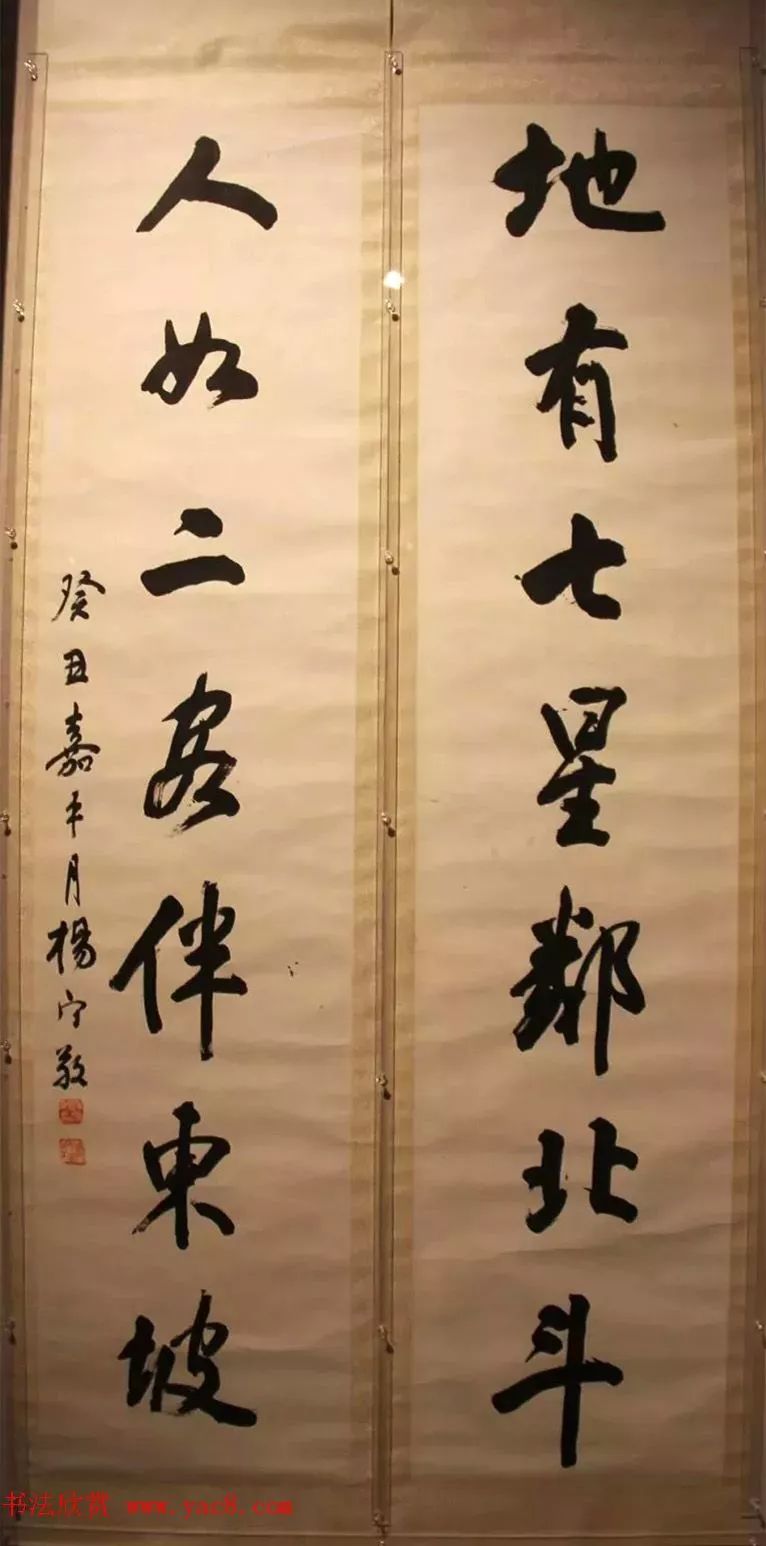 地有七星鄰北斗
人如二客伴東坡
癸丑嘉平月楊守敬
书法欣赏 www.yac8.com